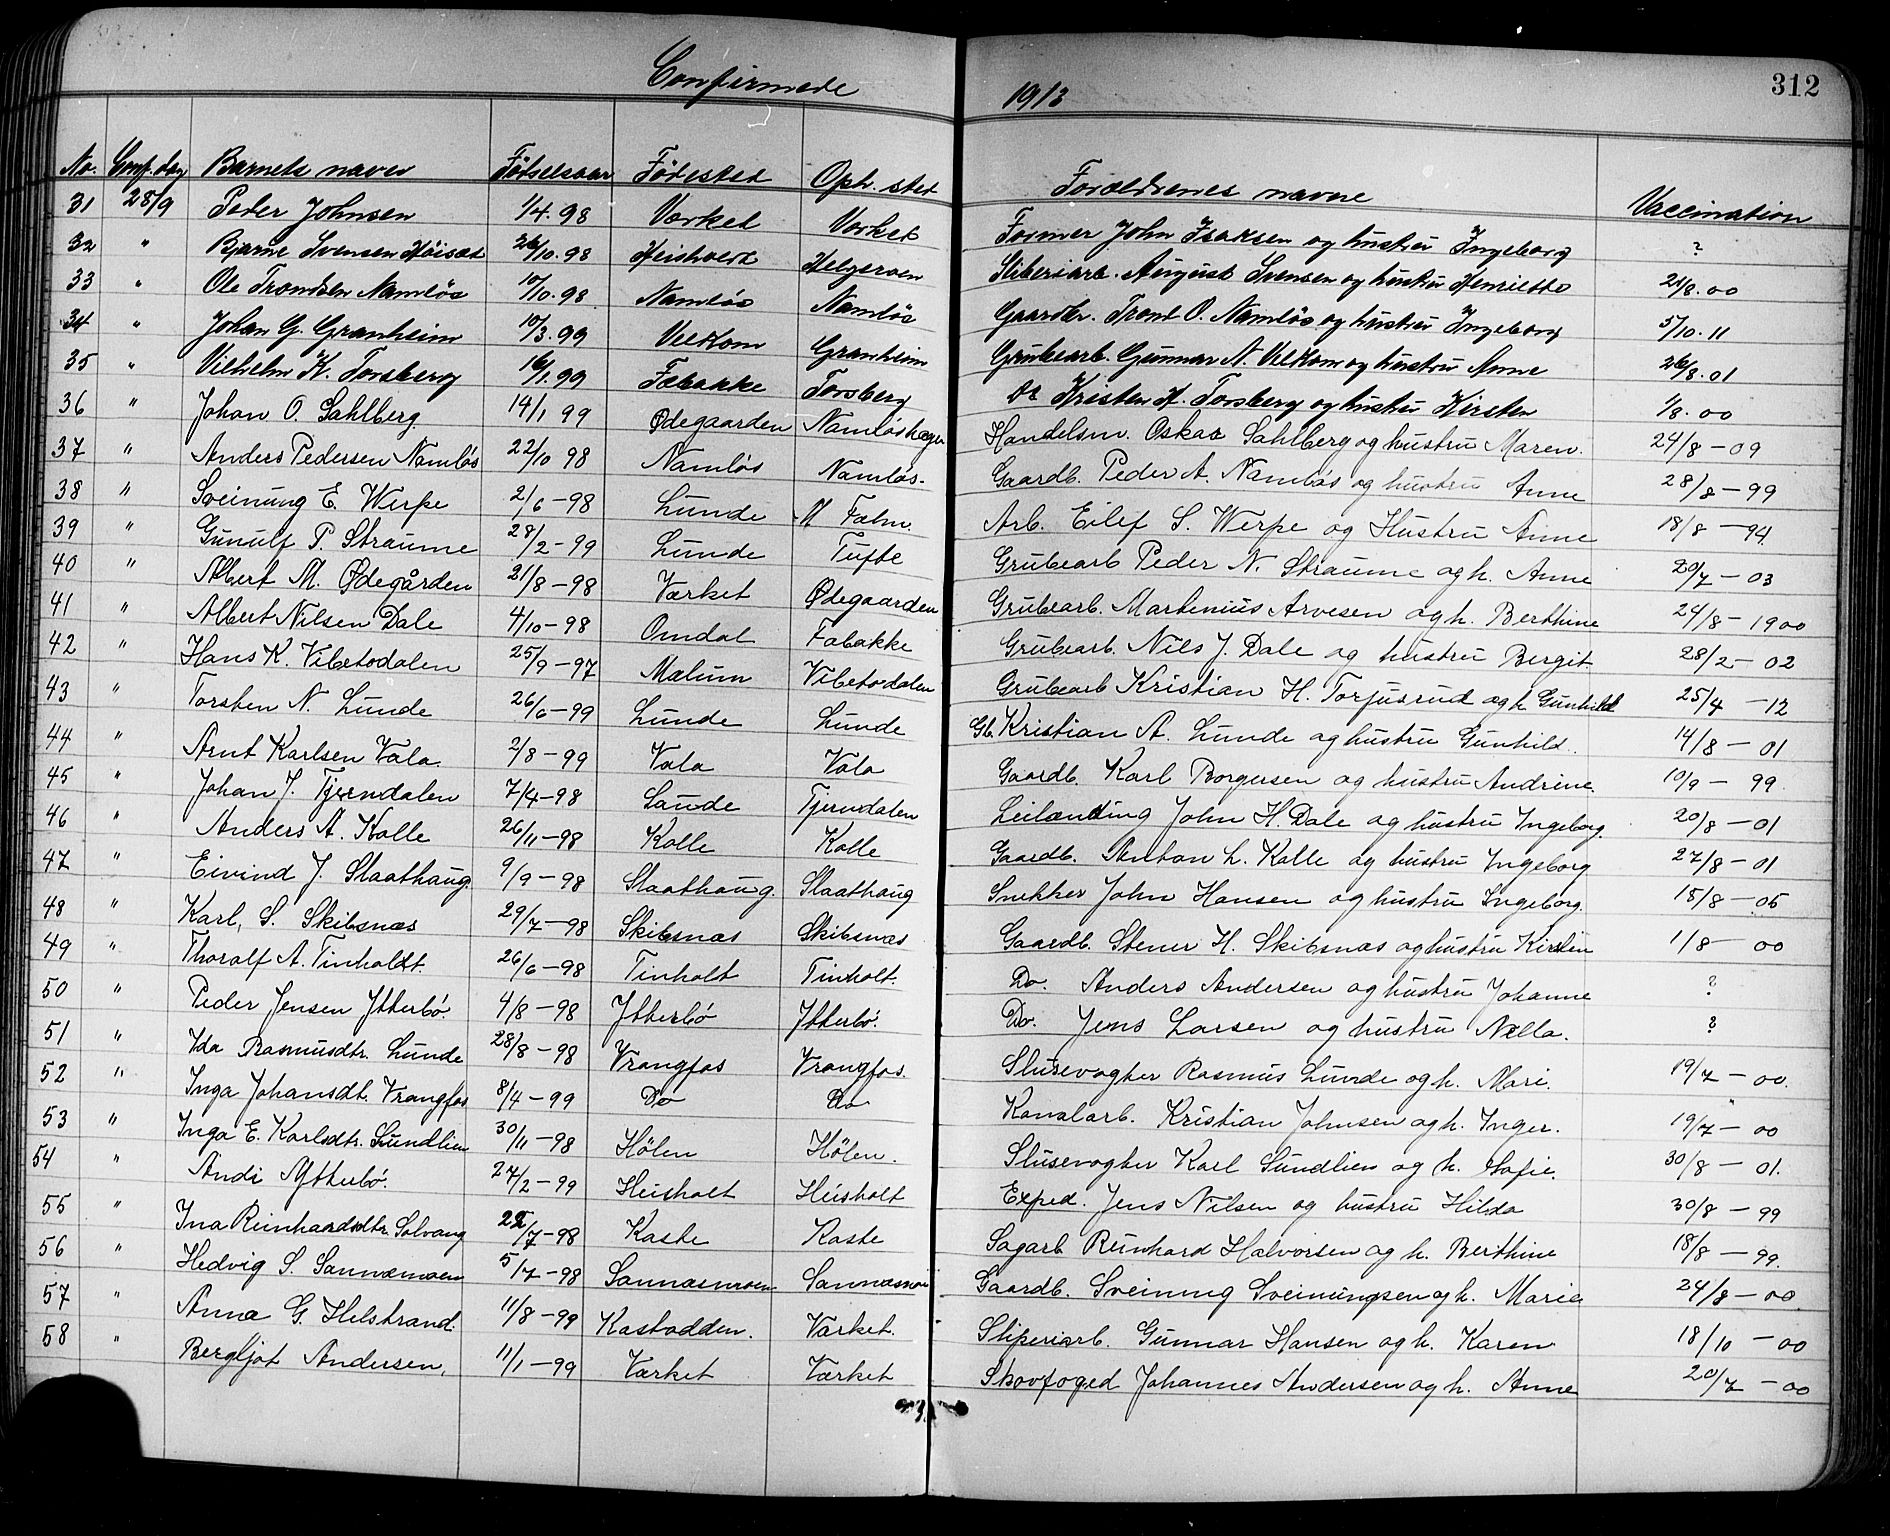 Confirmede 1913 312
No. Conf. dag Barnets navn Fødselsaar Fødested Oph. sted Forældrenes navne Vaccination
31 28/9 Peder Johnsen 1/4.98 Værket Værket Former John Isaksen og hustru Ingeborg ?
32 " Bjarne Svensen Høisæt 26/10.98 Heishvert Helgeroen Sliberiarb. August Svensen og hustru Henriette 21/8.00
33 " Ole Trondsen Namløs 10/10.98 Namløs Namløs Gaardbr. Trond O. Namløs og hustru Ingeborg 5/10.11
34 " Johan G. Granheim 10/3.99 Velkom Granheim Grubearb. Gunnar N. Velkom og hustru Anne 26/8.01
35 " Vilhelm K. Forsberg 16/1.99 Fæbakke Forsberg Do Kristen H. Forsberg og hustru Kirsten 1/8.00
36 " Johan O. Sahlberg 14/1 99 Ødegaarden Namløshagen Handelsm. Oskar Sahlberg og hustru Maren. 24/8 – 09
37 " Anders Pedersen Namløs 22/10 98 Namløs Namløs. Gaardb. Peder A. Namløs og hustru Anne 28/8 – 99
38 " Sveinung E. Werpe 2/6 – 98 Lunde M Fæhn. Arb. Eilef S. Werpe og Hustru Anne 18/8 – 94.
39 " Gunulf P. Straume 28/2 – 99 Lunde Tufte Grubearb Peder N. Straume og h. Anne 20/7 – 03
40 " Albert M. Ødegården 21/8 – 98 Værket Ødegaarden Grubearb. Martinius Arvesen og h. Berthine 24/8 – 1900
41 " Albert Nilsen Dale 4/10 – 98 Omdal Fabakke Grubearb. Nils J. Dale og hustru Bergit 28/2 – 02
42 " Hans K. Vibetodalen 25/9 – 97 Mælum Vibetodalen Grubearb Kristian H. Torjusrud og h Gunhild 25/4 – 12
43 " Torsten N. Lunde 26/6 – 99 Lunde Lunde Gb. Kristian A. Lunde og hustru Gunhild. 14/8 – 01
44 " Arnt Karlsen Vala 2/8 – 99 Vala Vala Gaardb. Karl Borgersen og hustru Andrine 10/9 – 99
45 " Johan J. Tjerndalen 7/4 – 98 Saude Tjerndalen Leilænding John H. Dale og hustru Ingeborg. 20/8 – 01
46 " Anders A. Kolle 26/11 – 98 Kolle Kolle Gaardb. Anton L. Kolle og hustru Ingeborg 27/8 – 01
47 " Eivind J. Slaathaug 9/9 – 98 Slaathaug. Slaathaug Snekker John Hansen og hustru Ingeborg. 15/8 – 05
48 " Karl, S. Skibsnæs 29/7 – 98 Skibsnæs Skibsnæs Gaardb. Stener H. Skibsnæs og hustru Kirstin 1/8 – 00
49 " Thoralf A. Tinholdt. 26/6 – 98 Tinholt Tinholt. Do. Anders Andersen og hustru Johanne ?
50 " Peder Jensen Ytterbø. 4/8 – 98 Ytterbø Ytterbø. Do. Jens Larsen og hustru Nella. ?
51 " Ida Rasmusdtr. Lunde 28/8 – 98 Vrangfos Vrangfos. Slusevogter Rasmus Lunde og h. Mari. 19/7 – 00.
52 " Inga Johansdt. Vrangfos 8/4 – 99 Do Do Kanalarb. Kristian Johnsen og h. Inger. 19/7 – 00
53 " Inga E. Karlsdtr. Sundlien 30/11 – 98 Hølen Hølen. Slusevogter Karl Sundlien og h. Sofie. 30/8 – 01.
54 " Andi Ytterbø. 27/2 – 99 Heisholt Heisholt Exped. Jens Nilsen og hustru Hilda 30/8 – 99
55 " Ina Reinhardsdtr. Solvang 22/7 – 98 Kaste Kaste Sagarb Reinhard Halvorsen og h. Berthine 18/8 – 99.
56 " Hedvig S. Sannæmoen 5/7 – 98 Sannæsmoen Sannæsmoen Gaardb. Sveinung Sveinungsen og h. Marie 24/8 – 00
57 " Anna G. Helstrand. 11/8 – 99 Kastodden. Værket. Sliperiarb. Gunnar Hansen og h. Karen 18/10 – 00
58 " Bergljot Andersen, 11/1 – 99 Værket Værket Skovfoged Johannes Andersen og h. Anne 20/7 – 00